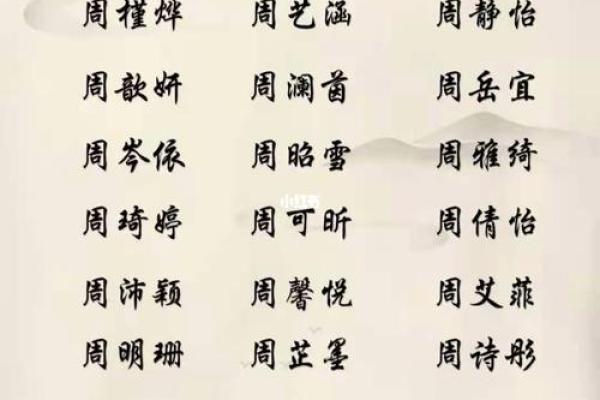 周槿烨 周艺涵 周静怡
周歆妍 周澜茵 周岳宜
周岑依 周昭雪 周雅绮
小红书
周琦婷 周可昕 周倩怡
周沛颖 周馨悦 周艾菲
周明珊 周芷墨 周诗彤